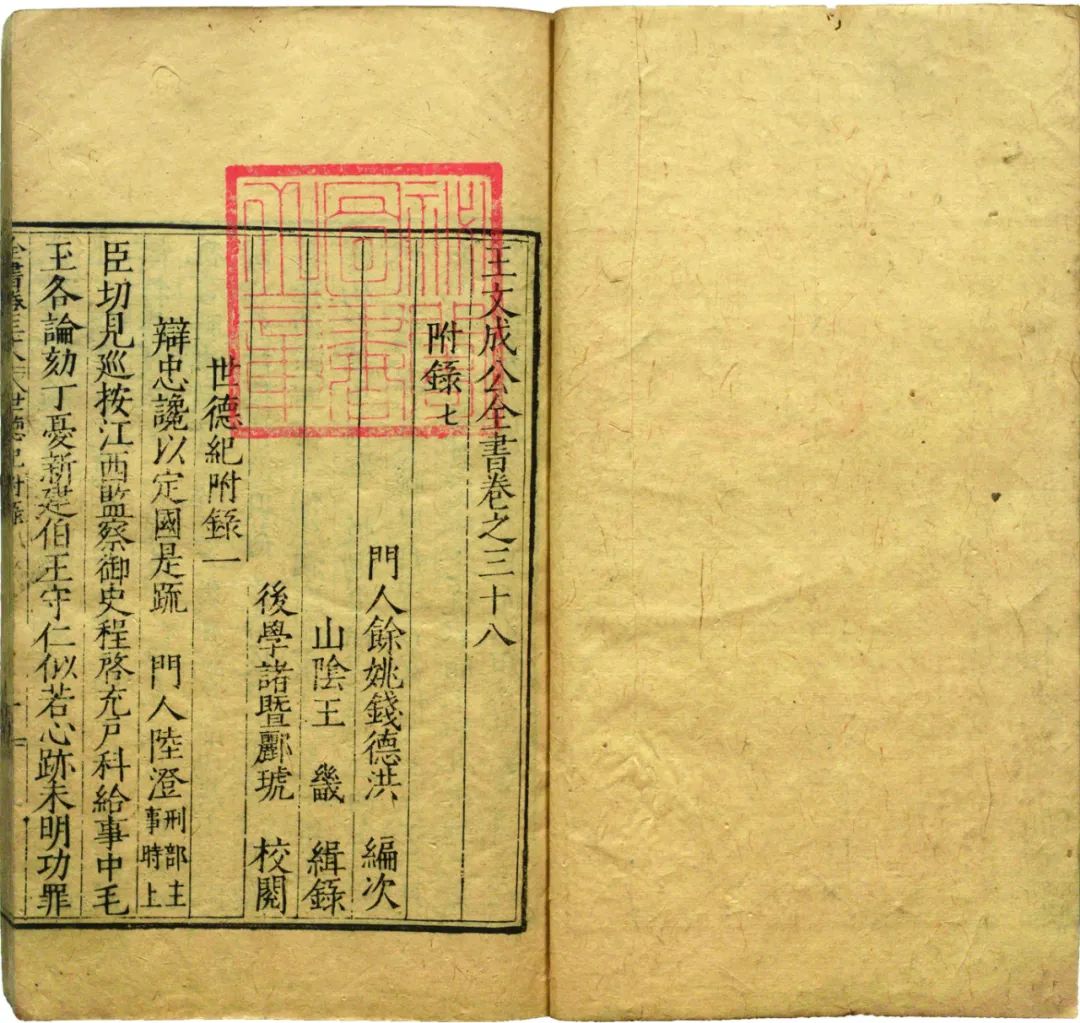 王文成公全書卷之三十八
附錄七
門人餘姚錢德洪 編次
山陰王 畿 緝錄
後學諸暨酈琥 校閱
世德紀附錄一
辯忠讒以定國是疏 門人陸澄刑部主事時上
臣切見巡按江西監察御史程啓充戶科給事中毛
玉各論劾丁憂新建伯王守仁似若心跡未明功罪
全書卷三十八 世德紀附錄